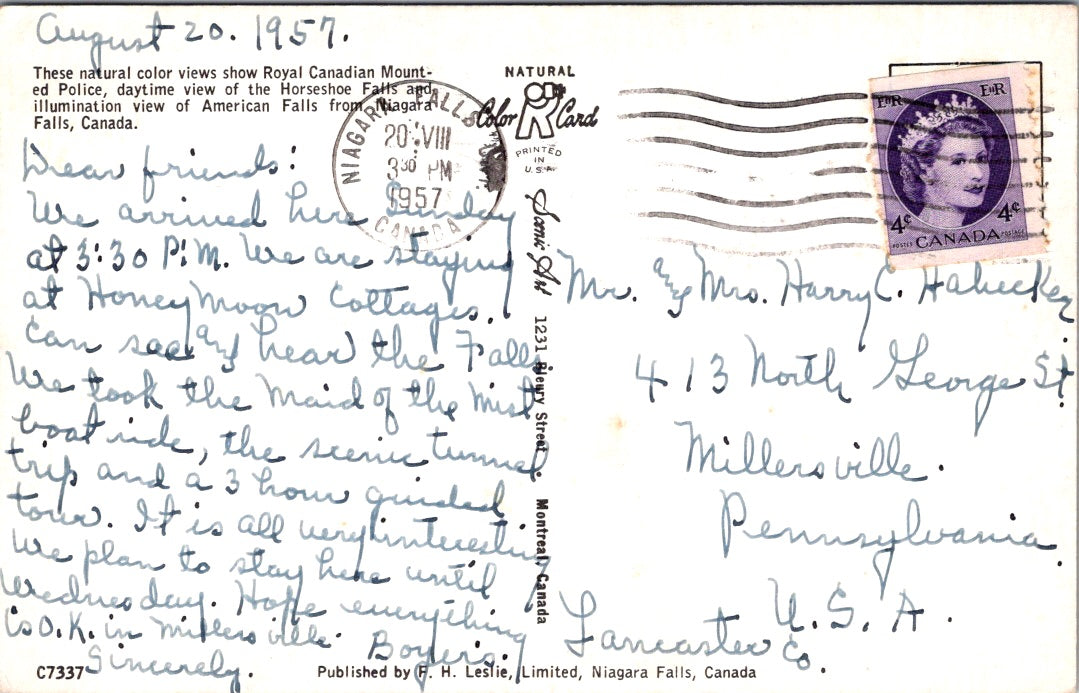 August 20. 1957.
These natural color views show Royal Canadian Mount-
ed Police, daytime view of the Horseshoe Falls and
illumination view of American Falls from Niagara
Falls, Canada.
Dear friends:
We arrived here Sunday
at 3:30 P.M. We are staying
at Honey Moon Cottages.
Can see and hear the Falls
We took the Maid of the Mist
boat ride, the scenic tunnel
trip and a 3 hour guided
tour. It is all very interesting
We plan to stay here until
Wednesday. Hope everything
is O.K. in Millersville.
Sincerely. Boyers.
C7337
NATURAL
Color Card
PRINTED
IN
U.S.A.
Scenic Art 1231 Bleury Street. Montreal, Canada
Published by F. H. Leslie, Limited, Niagara Falls, Canada
NIAGARA FALLS
20 VIII
3 30 PM
1957
CANADA
EIIR EIIR
4¢ 4¢
POSTES CANADA POSTAGE
Mr. and Mrs. Harry C. Habecker
413 North George St.
Millersville.
Pennsylvania.
U. S. A.
Lancaster Co.